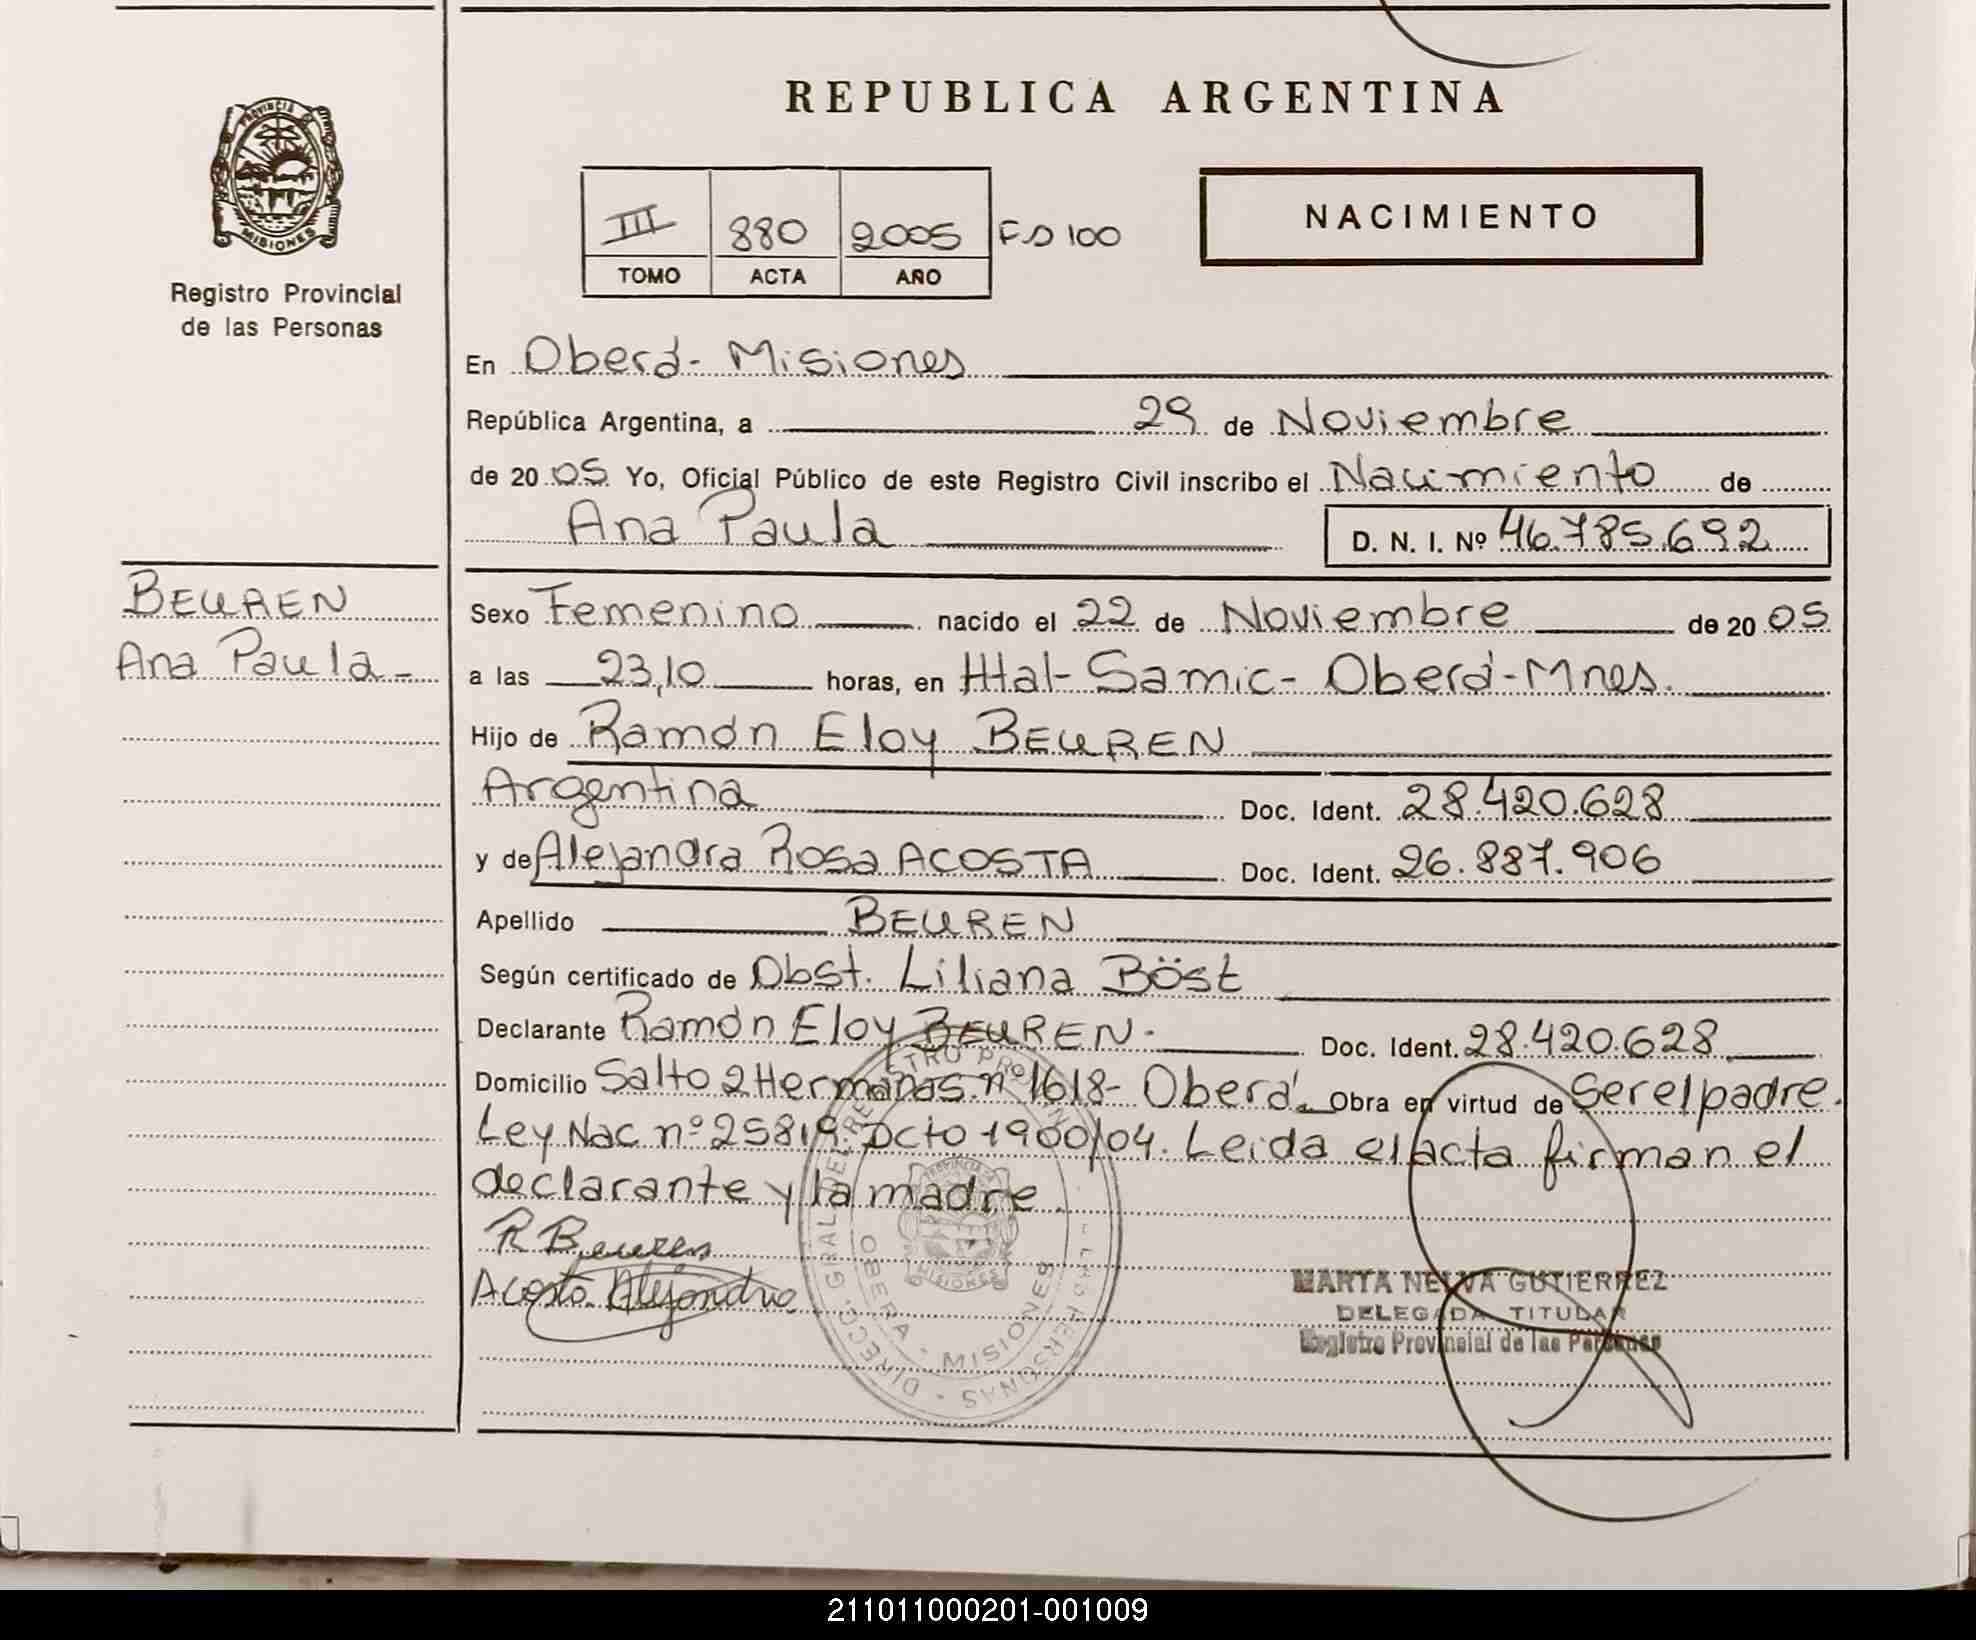 REPUBLICA ARGENTINA
PROVINCIA DE
MISIONES
Registro Provincial
de las Personas
III 880 2005 Fº 100
TOMO ACTA AÑO
NACIMIENTO
En Oberá- Misiones
República Argentina, a 29 de Noviembre
de 2005 Yo, Oficial Público de este Registro Civil inscribo el Nacimiento de
Ana Paula D. N. I. Nº 46.785.692
BEUREN
Ana Paula-
Sexo Femenino nacido el 22 de Noviembre de 2005
a las 23,10 horas, en Htal- Samic- Oberá-Mnes.
Hijo de Ramón Eloy BEUREN
Argentina Doc. Ident. 28.420.628
y de Alejandra Rosa ACOSTA Doc. Ident. 26.887.906
Apellido BEUREN
Según certificado de Obst. Liliana Böst
Declarante Ramón Eloy BEUREN- Doc. Ident. 28.420.628
Domicilio Salto 2 Hermanas nº 1618- Oberá. Obra en virtud de Ser el padre.
Ley Nac nº 25819. Dcto 1900/04. Leida el acta firman el
declarante y la madre.
R Beuren
Acosta Alejandra
OBERA - MISIONES
MISIONES
MARTA NELVA GUTIERREZ
DELEGADA TITULAR
Registro Provincial de las Personas
211011000201-001009